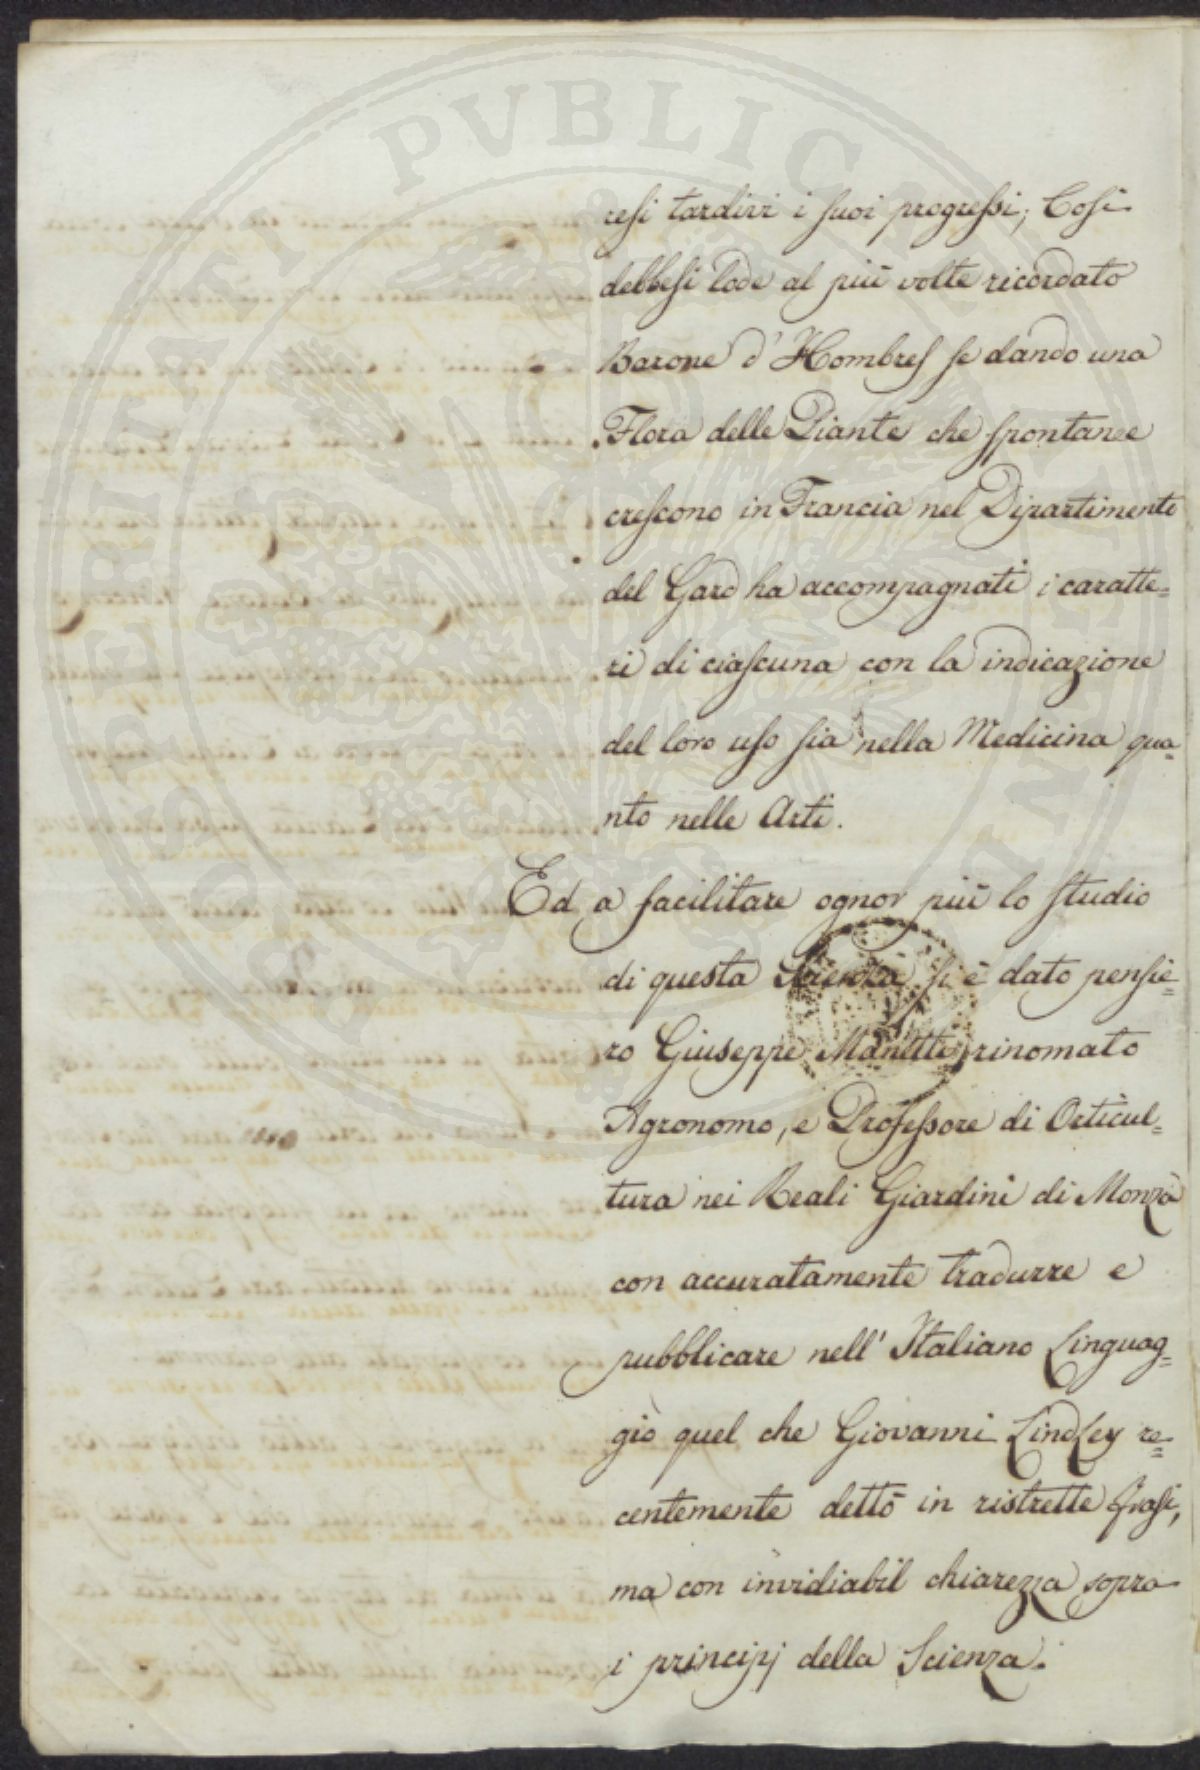 resi tardivi i suoi progressi; Così
debbesi lode al più volte ricordato
Barone d'Hombres se dando una
Flora delle Piante che spontanee
crescono in Francia nel Dipartimento
del Gard ha accompagnati i caratte=
ri di ciascuna con la indicazione
del loro uso sia nella Medicina qua=
nto nelle Arti.
Ed a facilitare ognor più lo studio
di questa Scienza si è dato pensie=
ro Giuseppe Manetti rinomato
Agronomo, e Professore di Orticul=
tura nei Reali Giardini di Monza
con accuratamente tradurre e
pubblicare nell'Italiano Linguag=
gio quel che Giovanni Lindley re=
centemente dettò in ristrette frasi,
ma con invidiabil chiarezza sopra
i principj della Scienza.
PROSPERITATI PVBLICAE